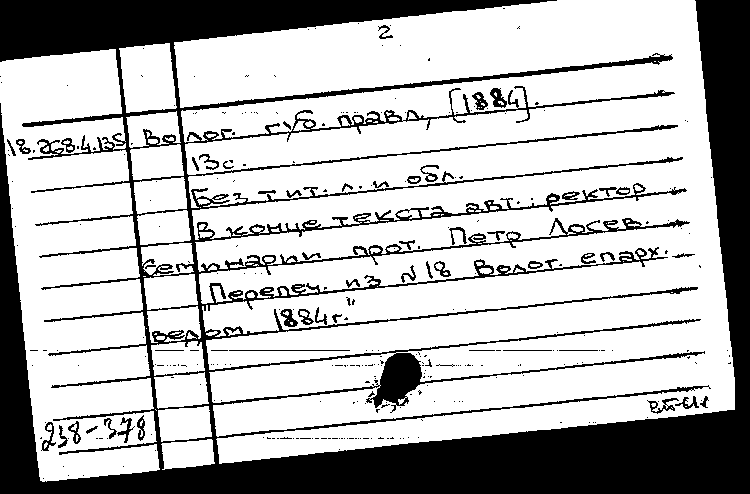 2
18.268.4.135. Волог. губ. правл., [1884].
13с.
Без тит. л. и обл.
В конце текста авт.: ректор
семинарии прот. Петр Лосев.
"Перепеч. из №18 Волог. епарх.
ведом. 1884г."
238-378